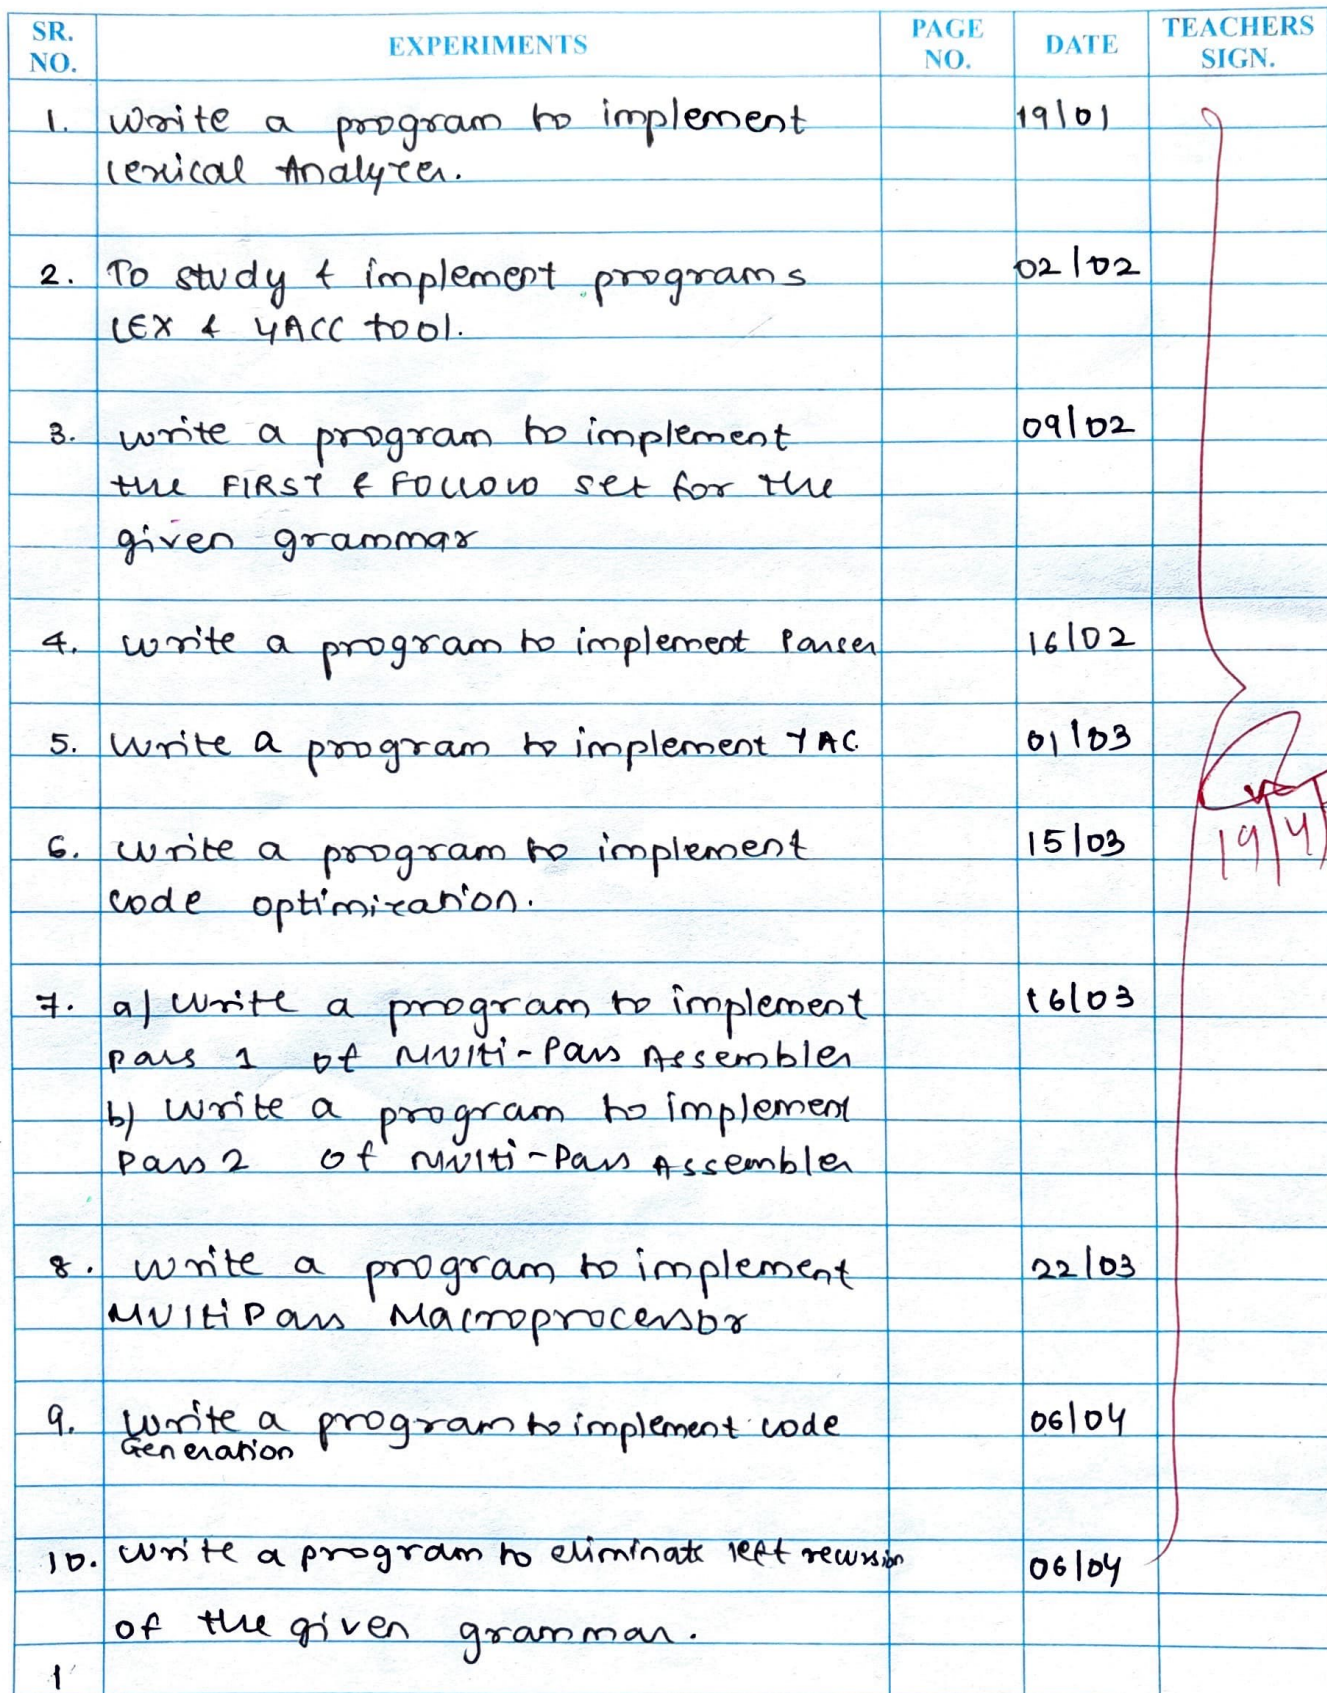 SR. NO. EXPERIMENTS PAGE NO. DATE TEACHERS SIGN.
1. Write a program to implement 19/01
Lexical Analyzer.
2. To study & implement programs 02/02
LEX & YACC tool.
3. write a program to implement 09/02
the FIRST & FOLLOW set for the
given grammar
4. write a program to implement Parser 16/02
5. Write a program to implement TAC. 01/03
6. Write a program to implement 15/03
code optimization.
19/4
7. a) Write a program to implement 16/03
pass 1 of Multi-Pass Assembler
b) Write a program to implement
Pass 2 of Multi-Pass Assembler
8. Write a program to implement 22/03
MultiPass Macroprocessor
9. Write a program to implement code 06/04
Generation
10. Write a program to eliminate left recursion 06/04
of the given grammar.
1